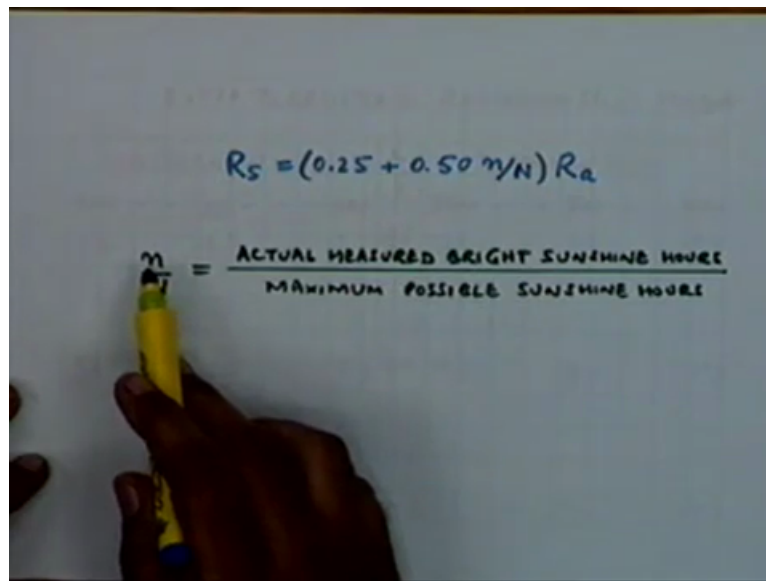 Rs = (0.25 + 0.50 n/N) Ra
n = ACTUAL MEASURED BRIGHT SUNSHINE HOURS
MAXIMUM POSSIBLE SUNSHINE HOURS